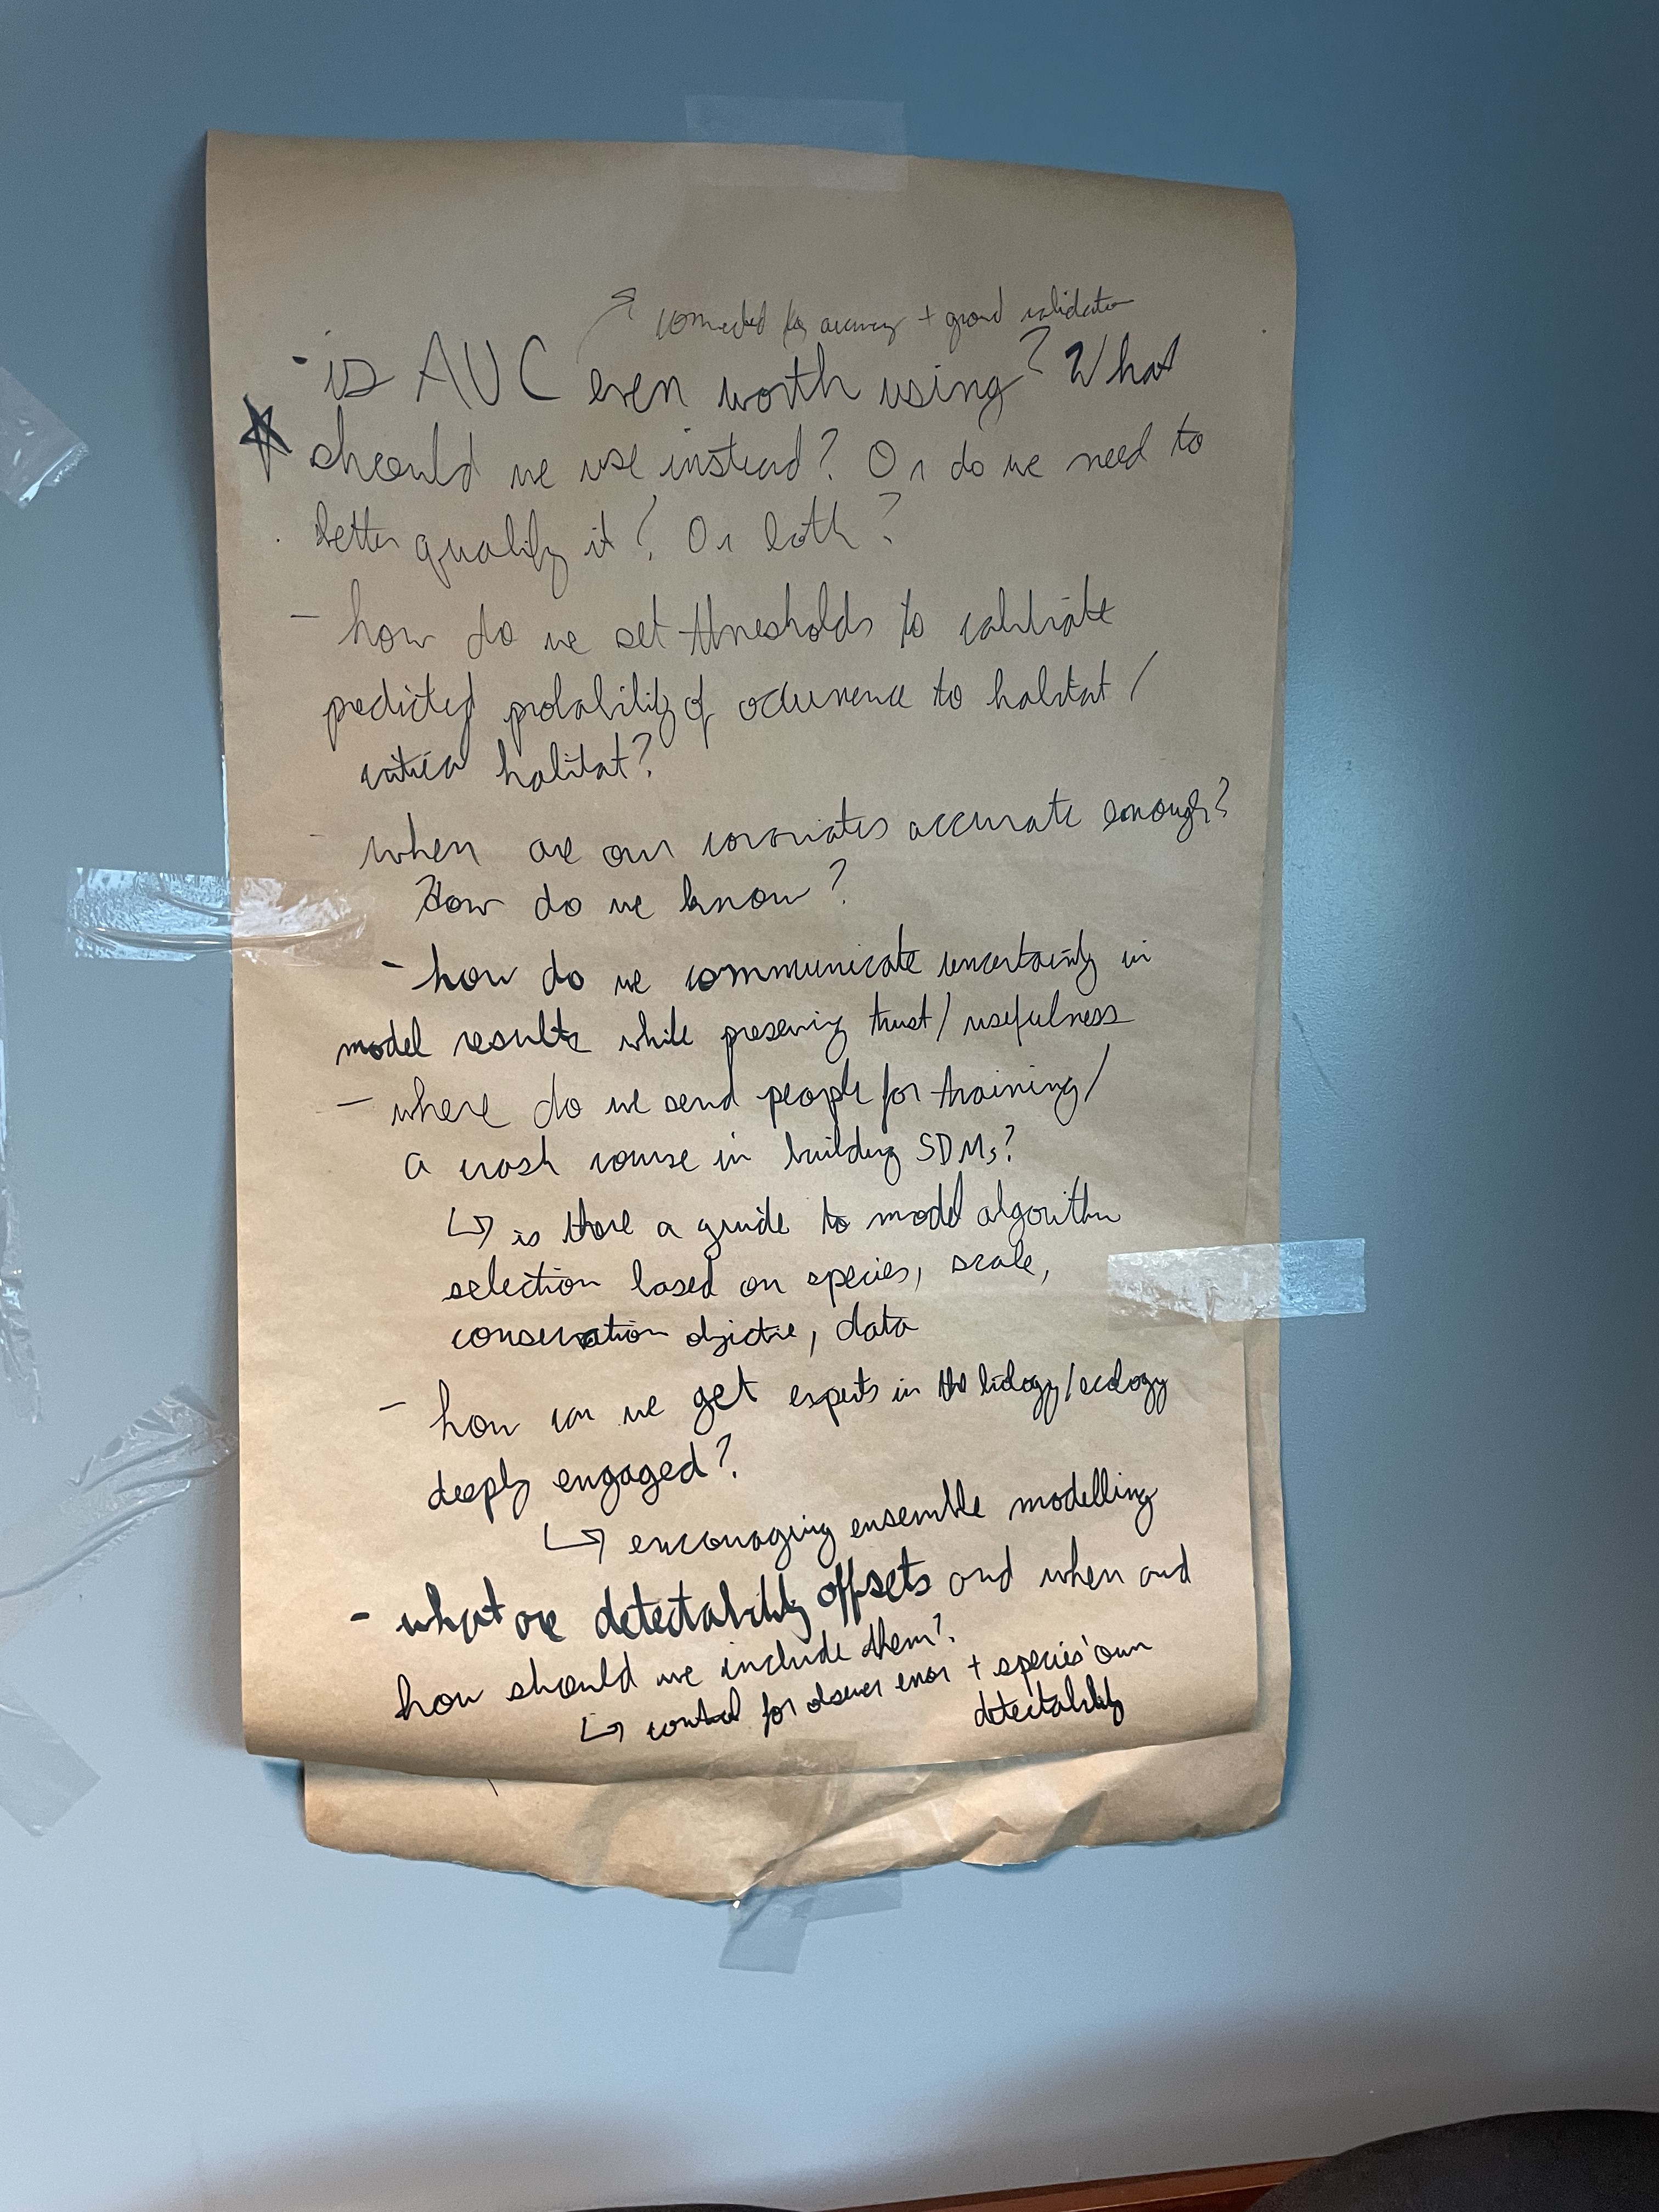 ↗ connected to accuracy + ground validation
- is AUC even worth using? What
☆ should we use instead? Or do we need to
better qualify it? Or both?
- how do we set thresholds to calibrate
predicted probability of occurrence to habitat /
critical habitat?
- when are our covariates accurate enough?
How do we know?
- how do we communicate uncertainty in
model results while preserving trust/usefulness
- where do we send people for training/
a crash course in building SDMs?
↳ is there a guide to model algorithm
selection based on species, scale,
conservation objective, data
- how can we get experts in the biology/ecology
deeply engaged?
↳ encouraging ensemble modelling
- what are detectability offsets and when and
how should we include them?
↳ control for observer error + species' own
detectability